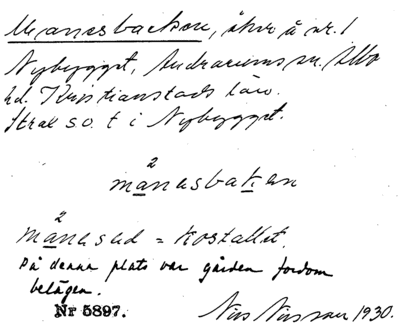 Manasbacken, åker å nr. 1
Nybygget, Andrarums sn. Albo
hd. Kristianstads län.
Strax s.o. t i Nybygget.
2
manasbaken
2
manasad = kostallet.
På denna plats var gården fordom
belägen.
Nr 5897. Nils Nilsson 1930.